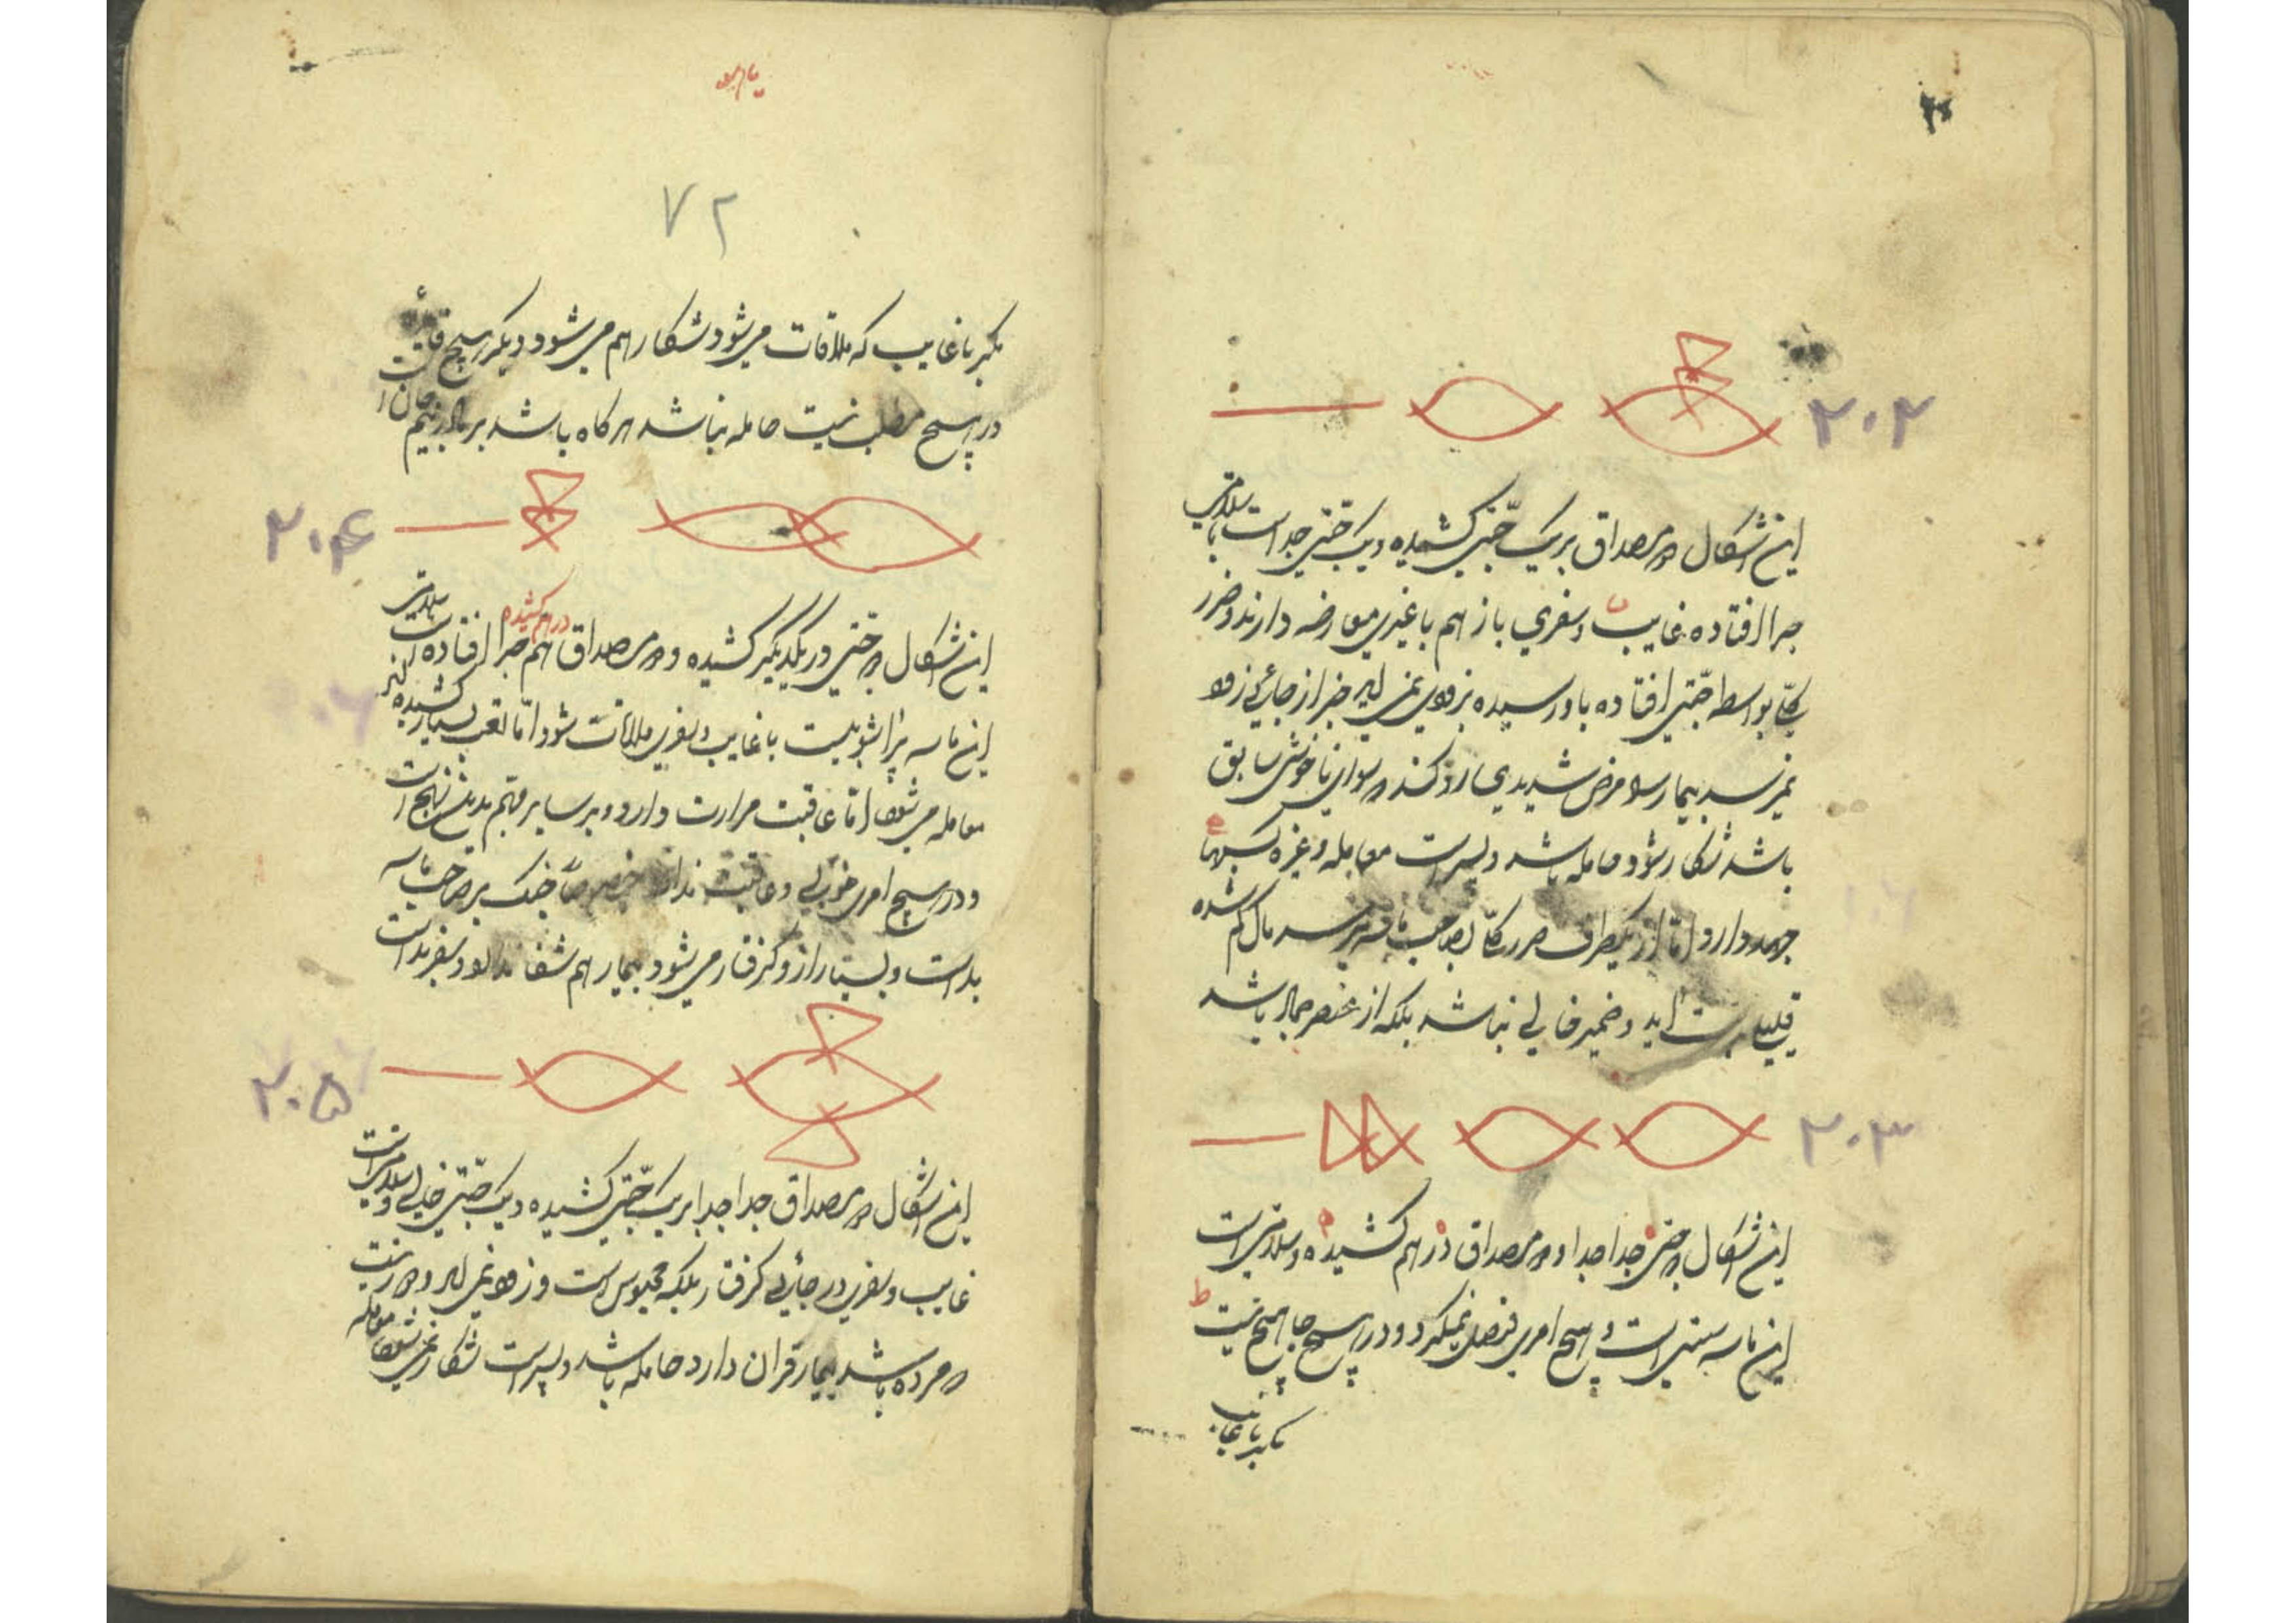 ۲۰۲
این اشکال دو مصداق بر یک جفتی کشیده و یک جفتی جداست با سلامتی
جرا افتاده غایب و سفری باز هم با غیری معارضه دارند و ضرر
کلی بواسطه جفتی افتاده باو رسیده بزودی نمی اید خبر از جائی زود
نمیرسد بیمار سوء مرض شدیدی دارد
باشد شکار شود حامله باشد و پسر است معامله و غیره
جهد دارد اما از یکطرف ضرر کلی بصاحب ماسه میرسد مال گم شده
بدست اید و ضمیر خالی نباشد بلکه از عنصر جمال باشد
۲۰۳
این اشکال دو جفتی جدا جدا و دو مصداق در هم کشیده و سلامتی است
این ماسه سنتی است و هیچ امری فیصل نمیگیرد و در هیچ جا هیچ نیست
مگر با غایب
۷۲
مگر با غایب که ملاقات می شود شکار هم می شود و دیگر هیچ
در هیچ مطلب نیست حامله نباشد هر گاه باشد بر مادر بیم جان
۲۰۴
این اشکال دو جفتی در یکدیگر کشیده و دو مصداق هم جرا افتاده است سلامتی
در هم کشیده
این ماسه با غایب و سفری ملاقات شود اما تعب بسیار کشیده
معامله می شود اما عاقبت مرارت دارد و بر سایر مهم بدین نهج است
و در هیچ امری خوبی و عاقبت ندارد خصوصا جنگ بر صاحب ماسه
بد است و بسیار از او گرفتار می شود بیمار هم شفا ندارد و سفر بد است
۲۰۵
این اشکال دو مصداق جدا جدا بر یک جفتی کشیده و یک جفتی خالی و سلامتی است
غایب و سفری در جائی گرفتار بلکه محبوس است و زود نمی اید و دور نیست
مرده باشد بیمار قران دارد حامله باشد و پسر است شکار نمی شود معامله